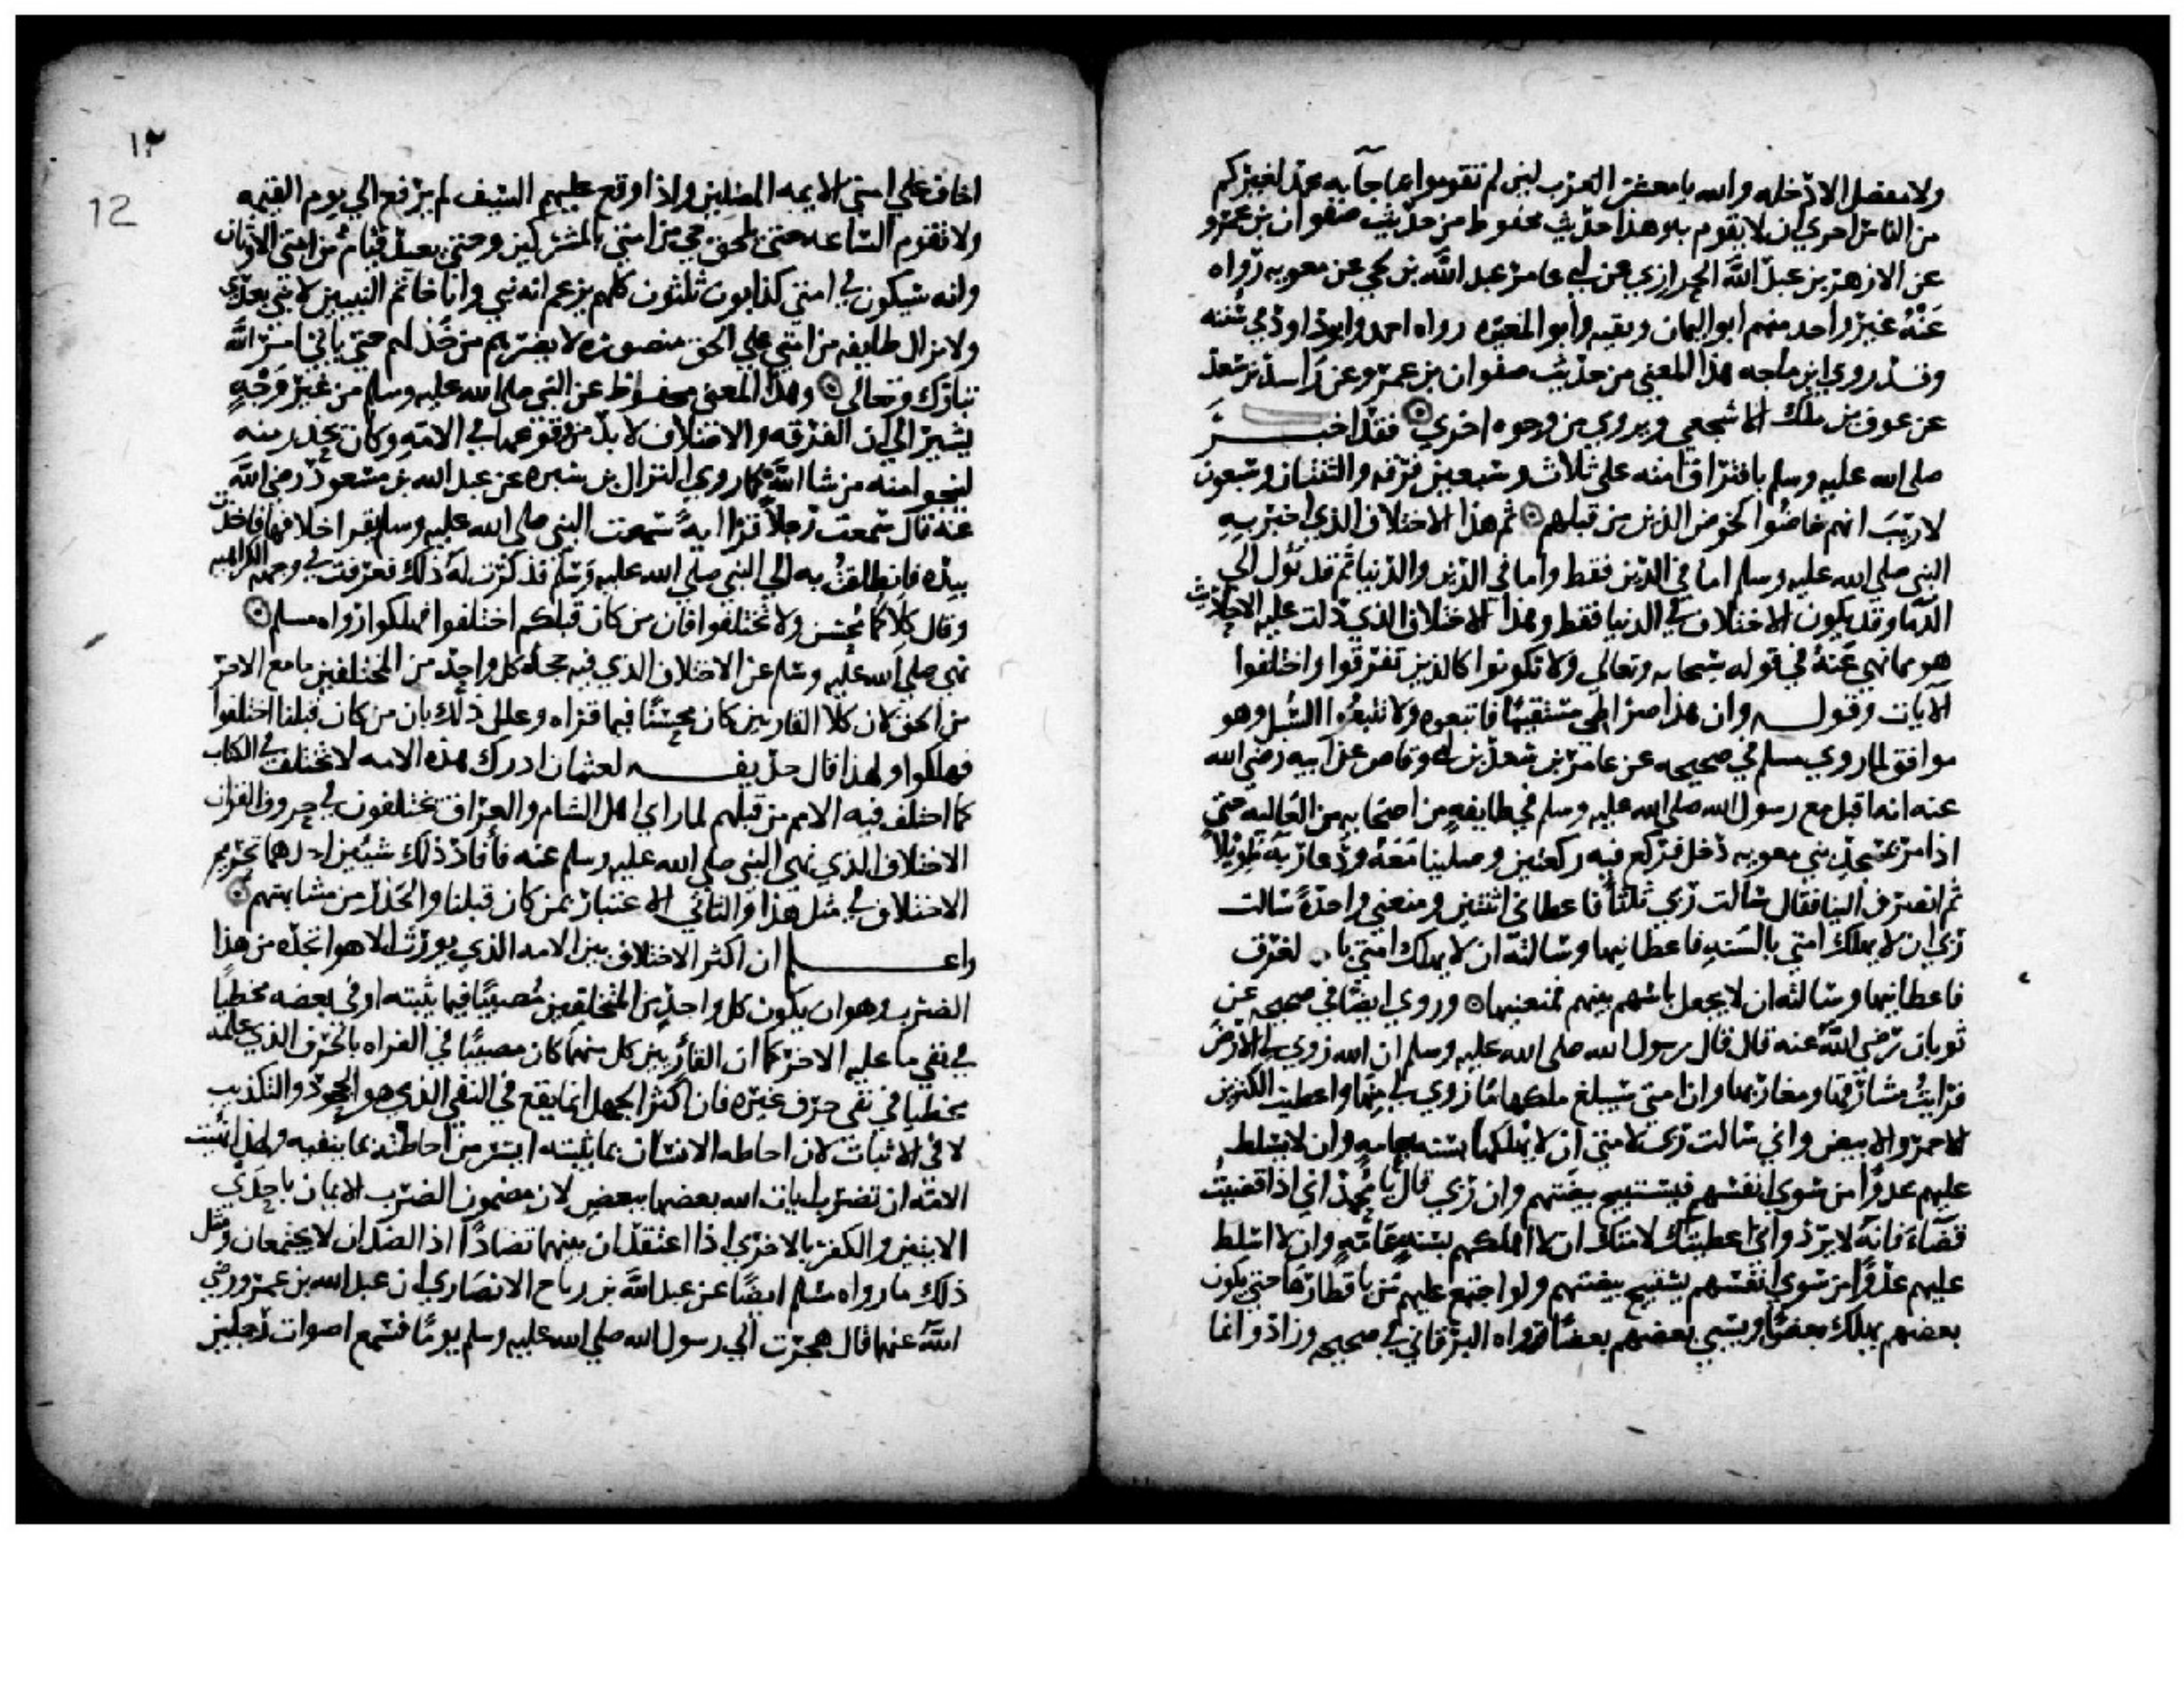 ولا مفصل الا دخله والله يا معشر العرب لين لم تقوموا بما جآ به محمد لغيركم
من الناس احرى ان لا يقوم به وهذا حديث محفوظ من حديث صفوان بن عمرو
عن الازهر بن عبد الله الحرازي عن ابي عامر عبد الله بن لحي عن معويه رواه
عنه غير واحد منهم ابو اليمان وبقيه وأبو المغيره رواه احمد وابوداود في سننه
وقد روي ابن ماجه هذا المعني من حديث صفوان بن عمرو عن راشد بن سعد
عن عوف بن ملك الاشجعي ويروي من وجوه اخري فقد اخبر
صلى الله عليه وسلم بافتراق امته على ثلاث وسبعين فرقه والثنتان وسبعون
لا ريب انهم خاضوا كخوض الذين من قبلهم ثم هذا الاختلاف الذي اخبر به
النبي صلى الله عليه وسلم اما في الدين فقط واما في الدين والدنيا ثم قد يول الى
الدما وقد يكون الاختلاف في الدنيا فقط وهذا الاختلاف الذي دلت عليه الاحاديث
هو مما نهي عنه في قوله سبحانه وتعالي ولا تكونوا كالذين تفرقوا واختلفوا
الآيات وقوله وان هذا صراطي مستقيما فاتبعوه ولا تتبعوا السبل وهو
موافق لما روي مسلم في صحيحه عن عامر بن سعد بن ابي وقاص عن ابيه رضي الله
عنه انه اقبل مع رسول الله صلى الله عليه وسلم في طايفه من اصحابه من العاليه حتى
اذا مر بمسجد بني معويه دخل فركع فيه ركعتين وصلينا معه ودعا ربه طويلا
ثم انصرف الينا فقال سالت ربي ثلثا فاعطاني اثنتين ومنعني واحدة سالت
ربي ان لا يهلك امتي بالسنه فاعطانيها وسالته ان لا يهلك امتي با لغرق
فاعطانيها وسالته ان لا يجعل باسهم بينهم فمنعنيها وروي ايضا في صحيحه عن
ثوبان رضي الله عنه قال قال رسول الله صلى الله عليه وسلم ان الله زوي لي الارض
فرايت مشارقها ومغاربها وان امتي سيبلغ ملكها ما زوي لي منها واعطيت الكنزين
الاحمر والابيض واني سالت ربي لامتي ان لا يهلكها بسنه بعامه وان لا يسلط
عليهم عدوا من سوي انفسهم فيستبيح بيضتهم وان ربي قال يا محمد اني اذا قضيت
قضاء فانه لا يرد واني اعطيتك لامتك ان لا اهلكهم بسنه عامه وان لا اسلط
عليهم عدوا من سوي انفسهم يستبيح بيضتهم ولو اجتمع عليهم من باقطارها حتي يكون
بعضهم يهلك بعضا ويسبي بعضهم بعضا ورواه البرقاني في صحيحه وزاد وانما
١٢
12
اخاف على امتي الايمه المضلين واذا وقع عليهم السيف لم يرفع الي يوم القيمه
ولا تقوم الساعه حتي يلحق حي من امتي بالمشركين وحتي يعبد فئام من امتي الاوثان
وانه سيكون في امتي كذابون ثلثون كلهم يزعم انه نبي وانا خاتم النبيين لا نبي بعدي
ولا تزال طايفه من امتي علي الحق منصوره لا يضرهم من خذلهم حتي ياتي امر الله
تبارك وتعالى وهذا المعني محفوظ عن النبي صلى الله عليه وسلم من غير وجه
يشير الي ان الفرقه والاختلاف لا بد من وقوعهما في الامه وكان يحذر منه
لينجو امنه من شا الله كما روي النزال بن سبره عن عبد الله بن مسعود رضي الله
عنه قال سمعت رجلا قرا ايه سمعت النبي صلى الله عليه وسلم يقرا خلافها فاخذت
بيده فانطلقت به الي النبي صلى الله عليه وسلم فذكرت له ذلك فعرفت في وجهه الكراهيه
وقال كلاكما محسن ولا تختلفوا فان من كان قبلكم اختلفوا فهلكوا رواه مسلم
نهى صلى الله عليه وسلم عن الاختلاف الذي فيه جحد كل واحد من المختلفين ما مع الاخر
من الحق لان كلا القاريين كان محسنا فيما قراه وعلل ذلك بان من كان قبلنا اختلفوا
فهلكوا ولهذا قال حذيفه لعثمان ادرك هذه الامه لا تختلف في الكتاب
كما اختلف فيه الامم من قبلهم لما راي اهل الشام والعراق يختلفون في حروف القران
الاختلاف الذي نهى النبي صلى الله عليه وسلم عنه فأفاد ذلك شيئين احدهما تحريم
الاختلاف في مثل هذا والثاني الاعتبار بمن كان قبلنا والحذر من مشابهتهم
واعلم ان اكثر الاختلاف بين الامه الذي يورث الاهوا تجده من هذا
الضرب وهو ان يكون كل واحد من المختلفين مصيبا فيما يثبته او في بعضه مخطيا
في نفي ما عليه الاخر كما ان القاريين كل منهما كان مصيبا في القراه بالحرف الذي علمه
مخطيا في نفي حرف غيره فان اكثر الجهل انما يقع في النفي الذي هو الجحود والتكذيب
لا في الاثبات لان احاطه الانسان بما يثبته ايسر من احاطته بما ينفيه ولهذا نهيت
الامه ان تضرب ايات الله بعضها ببعض لان مضمون الضرب الايمان باحدي
الايتين والكفر بالاخري اذا اعتقد ان بينهما تضادا اذ الضدان لا يجتمعان ومثل
ذلك ما رواه مسلم ايضا عن عبد الله بن رباح الانصاري ان عبد الله بن عمرو رضي
الله عنهما قال هجرت الي رسول الله صلى الله عليه وسلم يوما فسمع اصوات رجلين